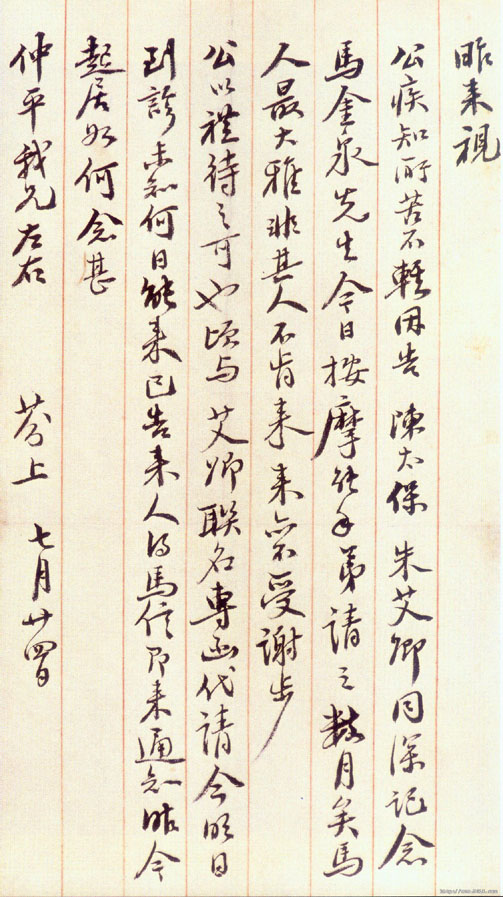 昨来視
公疾知所苦不輕因告 陳太保 朱艾卿同深記念
馬金泉先生今日按摩能手弟請之數月矣馬
人最大雅非其人不肯来来亦不受謝步
公以禮待之可也頃与 艾卿聯名專函代請今明日
到診未知何日能来已告来人得馬信即来通知昨今
起居如何念甚
仲平我兄左右 芬上 七月廿四日